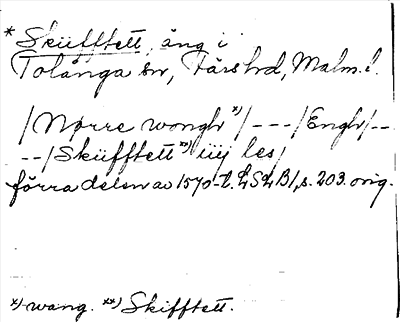 * Sküfftett, äng i
Tolånga sn, Färs hd, Malm. l.
/Nørre wongh x)/ --- /Engh/ --
--/Sküfftett xx) iiij les/
förra delen av 1570-t. LSLB1, s. 203. orig.
x) wang. xx) Skifftett.